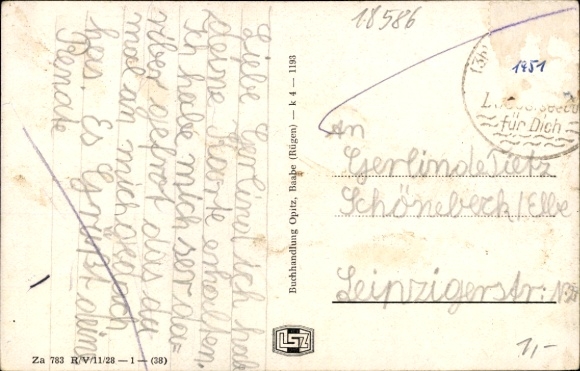 Liebe Gerlinde! ich hab
deine Karte erhalten.
Ich habe mich sor da
rüber gefreut das du
mal an mich gedach
hast. Es Grüßt deine
Renate
Buchhandlung Opitz, Baabe (Rügen) — k 4 — 1193
18586
1951
für Dich
An
Gerlinde Tietz
Schönebeck/Elbe
Leipzigerstr:
1,-
LSZ
Za 783 R/V/11/28 — 1 — (38)